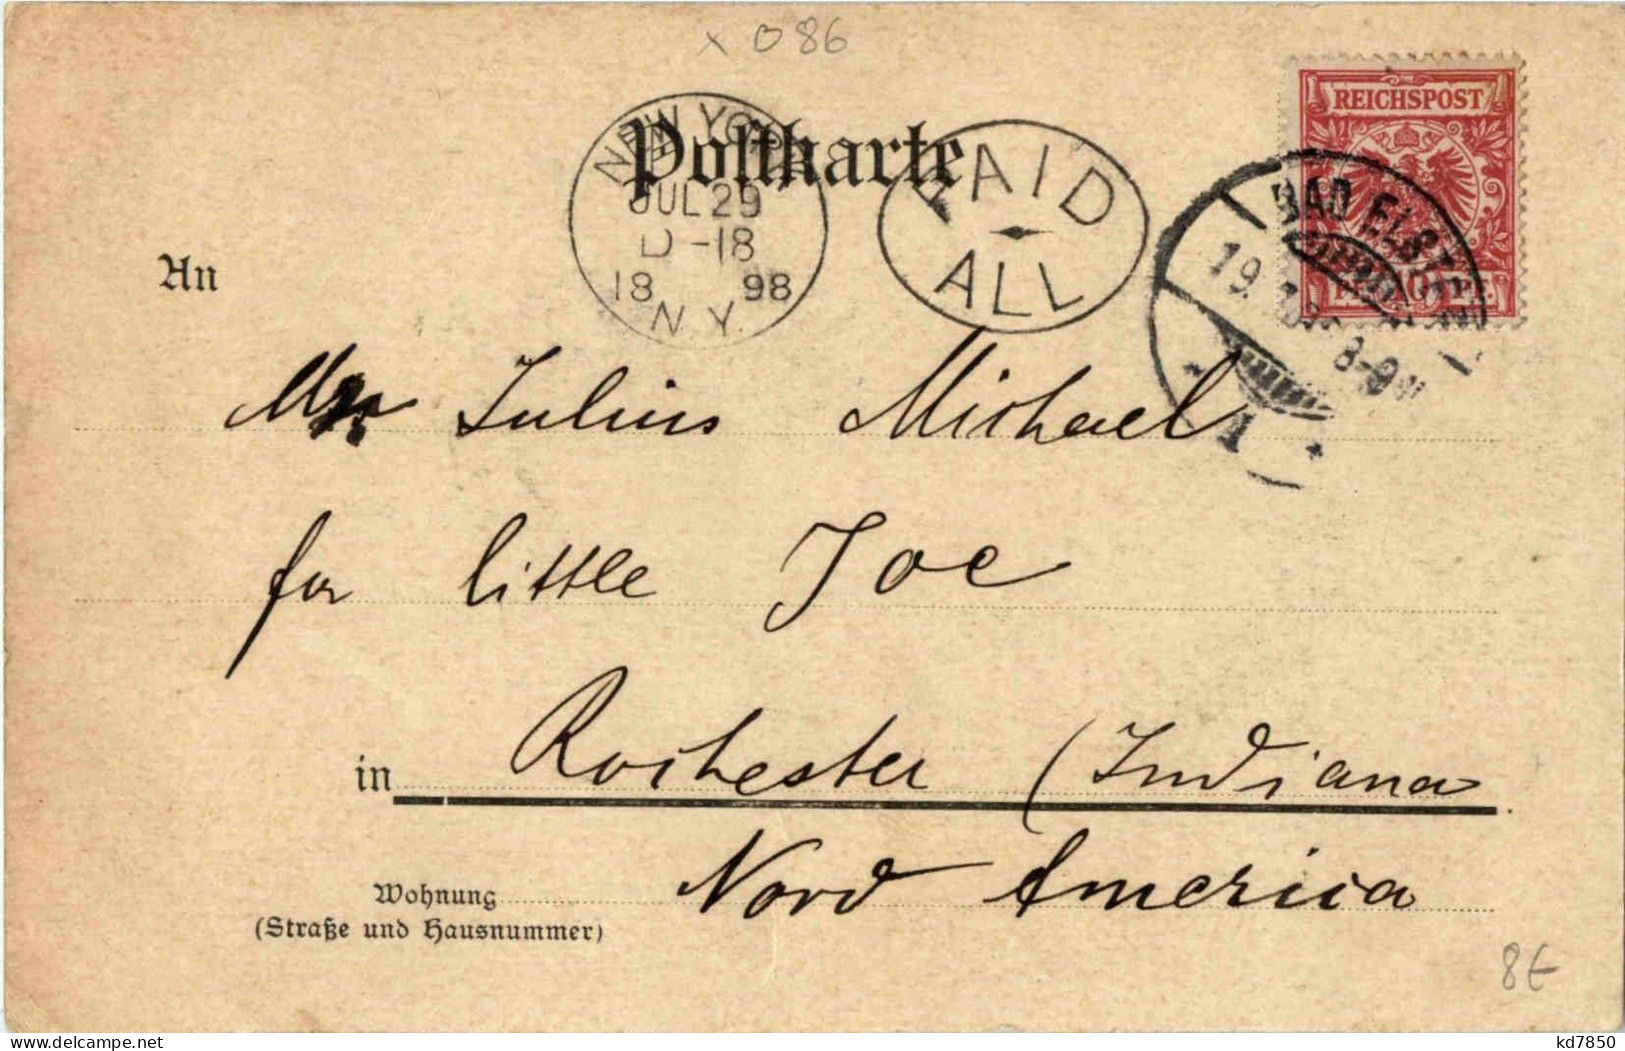 x 086
REICHSPOST
Postkarte
NEW YORK
JUL 29
D-18
18 98
N.Y.
PAID
ALL
BAD ELSTER
19.
8-9
1
An
Mr Julius Michael
for little Joe
in Rochester (Indiana
Nord America
Wohnung
(Straße und Hausnummer)
8€
kd7850